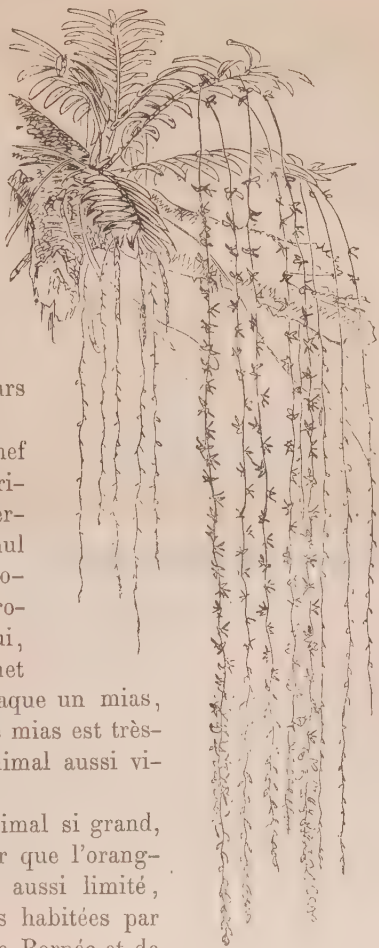 urs
hef
ri-
er-
nul
o-
ro-
ui,
net
aque un mias,
s mias est très-
imal aussi vi-
imal si grand,
r que l'orang-
aussi limité,
s habitées par